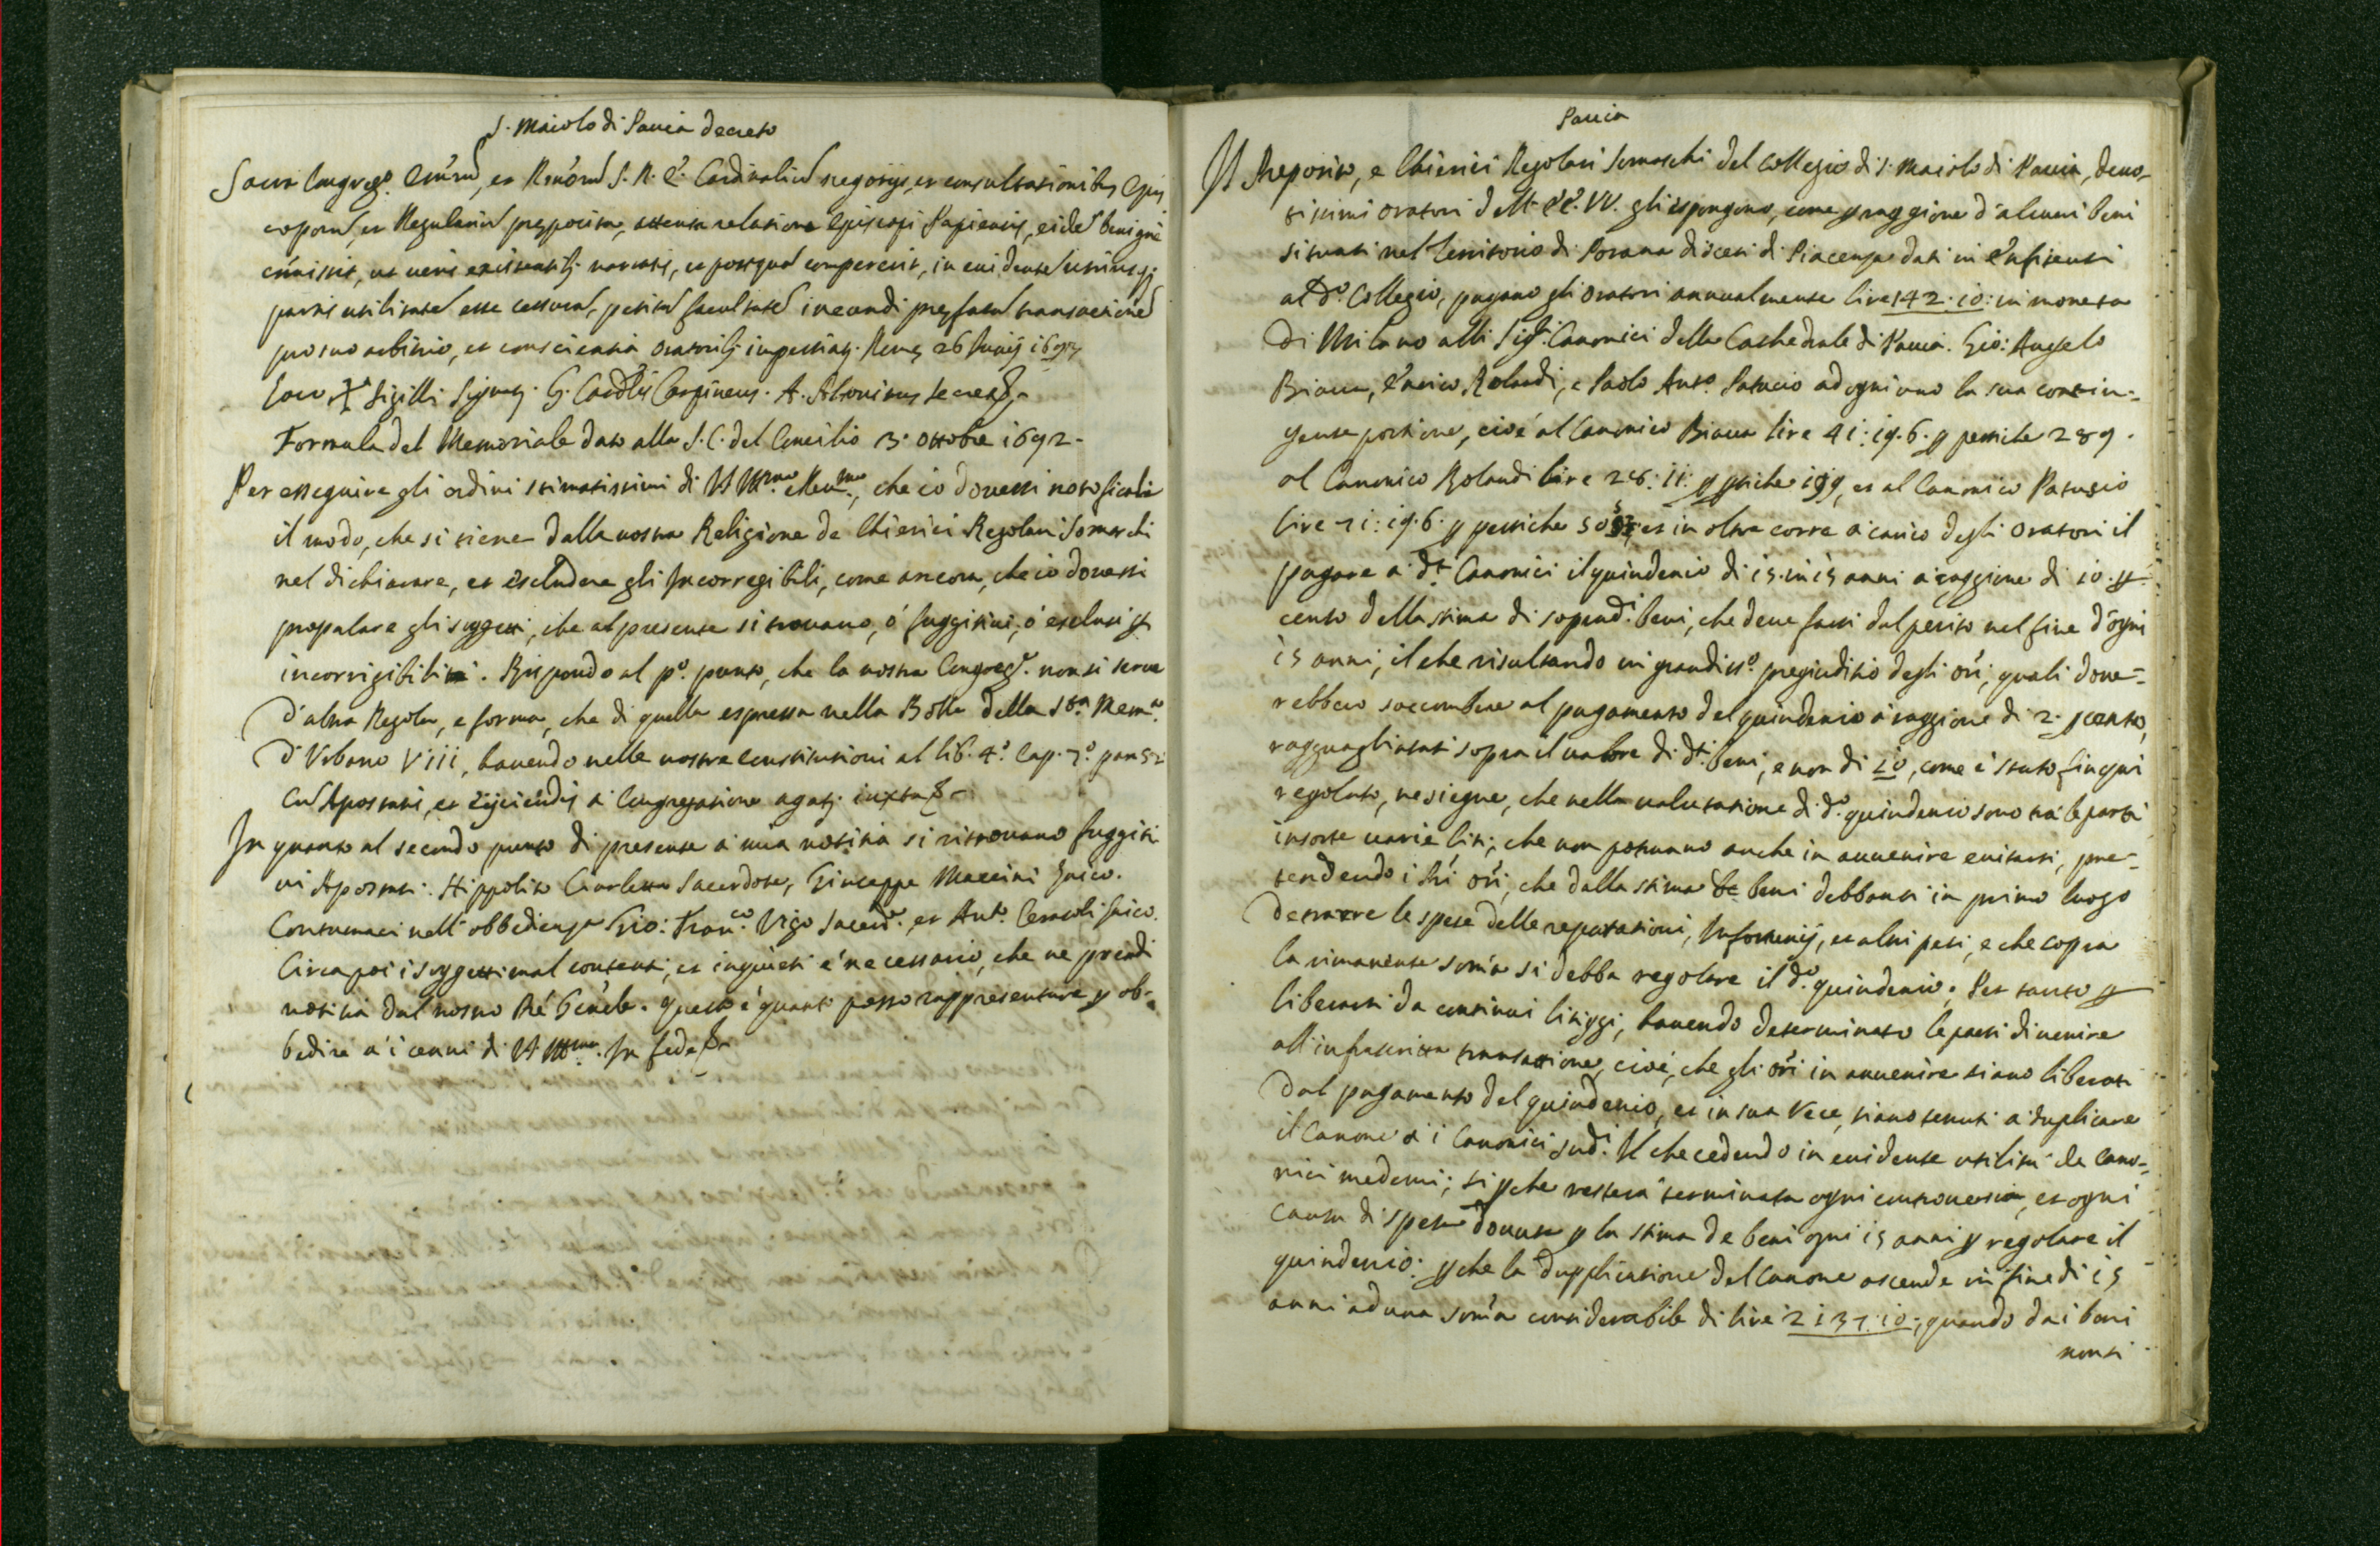 S. Maiolo di Pauia decreto
Sacra Congreg.º Em̃rum, et Reu̓orum S. R. E. Cardinalium negotijs, et consultationibus Epis
coporum, et Regularium preposita, attenta relatione Episcopi Papiensis, eidem benigne
com̃isit, ut ueris existentibus narratis, et postquam compererit, in euidentem utriusq;
partis utilitatem esse cessuram, petitam facultatem ineundi prefatam transactionem
pro suo arbitrio, et conscientia Oratoribus impertiat. Rome 26 Junij
Loco + Sigilli Signat. G. Card.lis Carpineus. A. Altouitus Secret.
Formula del Memoriale dato alla S. C. del Concilio 13. ottobre 1692.
Per esseguire gli ordini stimatissimi di VS Ill.ma e Reu.ma, che io douessi notificarle
il modo, che si tiene dalla nostra Religione de Chierici Regolari Somaschi
nel dichiarare, et escludere gli Incorregibili, come ancora, che io douessi
propalare gli suggetti, che al presente si trouano, ó fuggitiui, ó esclusi p
incorrigibilità. Rispondo al p.º punto, che la nostra Congreg.e non si serue
d'altra Regola, e forma, che di quella espressa nella Bolla della S.ta Mem.a
d'Vrbano VIII, hauendo nelle nostre Constitutioni al lib. 4.º Cap. 7.º
Cum Apostatis, et eijciendis á Congregatione agatur iuxta &
In quanto al secondo punto di presente a mia notitia si ritrouano fuggiti
ui Apostati. Hippolito Ciarletta Sacerdote, Giuseppe Maccini laico.
Contumaci nell'obbedienza Gio: Fran.co Vigo Sacerd.e et Ant.o Cerasoli laico.
Circa poi i suggetti mal contenti, et inquieti é necessario, che ne prendi
notitia dal nostro Ré Genẽle. questo é quanto posso rappresentare p ob-
bedire a i cenni di VS Ill.ma. In fede &
Pauia
Il Preposito, e Chierici Regolari Somaschi del Collegio di S. Maiolo di Pauia, deuo-
tissimi oratori dell' EE. VV. gli espongono, come p raggione d'alcuni beni
situati nel Territorio di Porana diocesi di Piacenza dati in Enfiteusi
al d.º Collegio, pagano gli Oratori annualmente lire 142: 10: in moneta
di Milano alli Sig.ri Canonici della Cathedrale di Pauia. Gio: Angelo
Biacca, Enrico Rolandi, e Paolo Ant.o Patucio ad ogni uno la sua contin-
gente portione, cioé al Canonico Biacca lire 41: 19. 6. p pertiche 289.
al Canonico Rolandi lire 28: 11: p p̃tiche 199, et al Canonico Patucio
lire 71: 19. 6. p pertiche et in oltre corre a carico degli Oratori il
pagare a d.ti Canonici il quindenio di 15. in 15 anni a raggione di 10. p
cento della stima di sopradi. beni, che deue farsi dal perito nel fine d'ogni
15 anni, il che risultando in grandiss.º pregiuditio degli ori̓, quali doue-
rebbero soccombere al pagamento del quindenio a raggione di 2. p cento,
ragguagliatosi sopra il ualore di d.ti beni, e non di 10, come é stato fin qui
regolato, ne siegue, che nella ualutatione di d.º quindenio sono tra le parti
insorte uarie liti; che non potranno anche in auuenire euitarsi, pre-
tendendo i ori̓, che dalla stima de beni debbansi in primo luogo
detrarre le spese delle reparationi, Infortunij, et altri pesi, e che sopra
la rimanente som̃a si debba regolare il d.º quindenio. Per tanto p
liberarsi da continui litiggi, hauendo determinato le parti di uenire
all'infrascritta transattione, cioé, che gli ori̓ in auuenire siano liberati
dal pagamento del quindenio, et in sua vece, siano tenuti a duplicare
il Canone a i Canonici sudi. Il che cedendo in euidente utilità de Cano-
nici medemi; si p che restera terminata ogni controuersia, et ogni
causa di spesa douuta p la stima de beni ogni 15 anni p regolare il
quindenio: p che la dupplicatione del Canone ascende in fine di 15
anni ad una som̃a considerabile di lire 2137: 10:, quando da i beni
non si